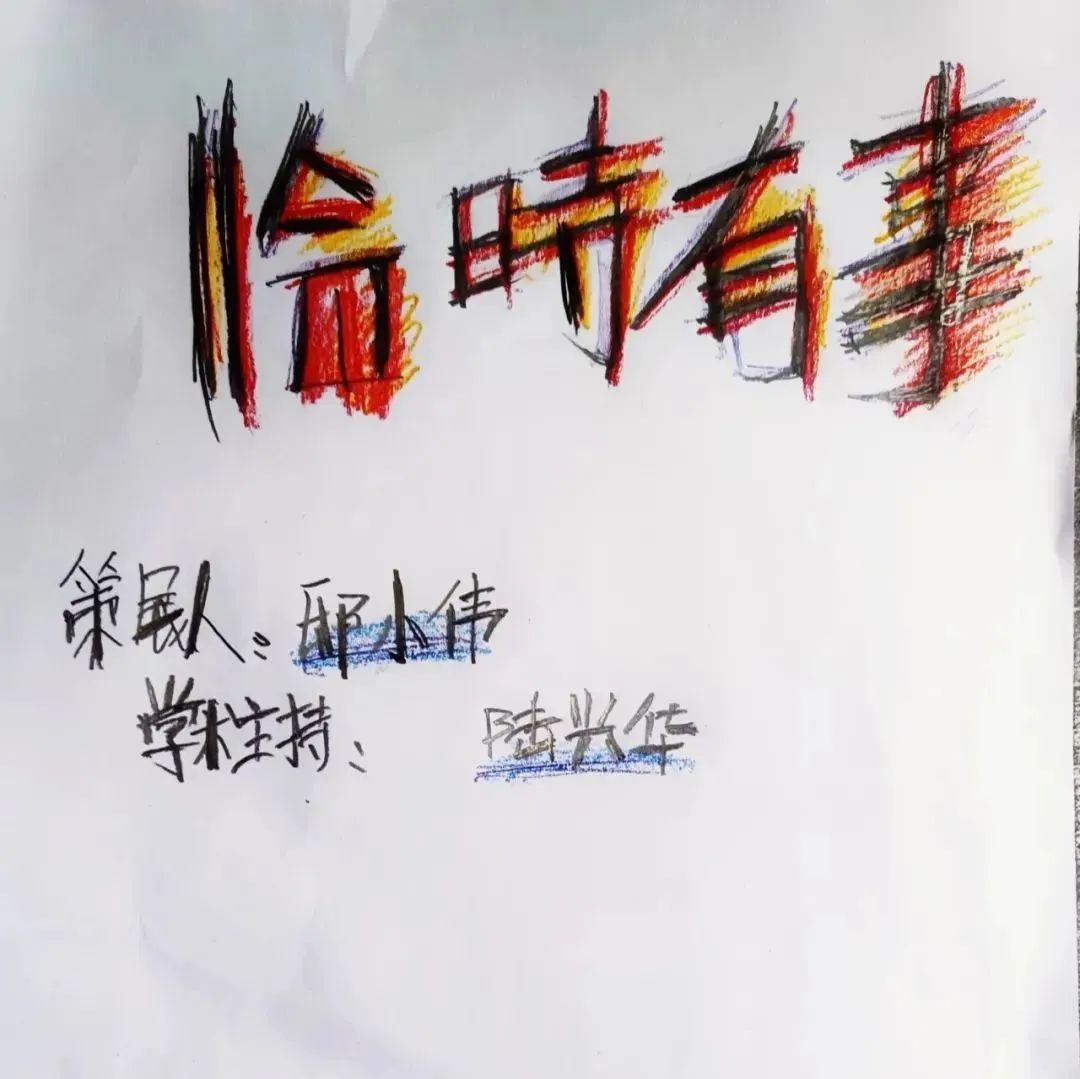 恰時有事
策展人：邱小伟
学术主持：陆兴华